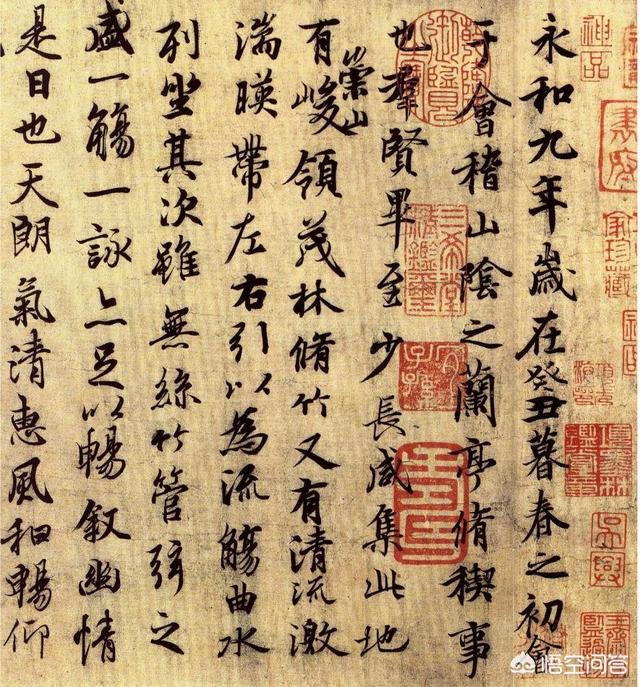 永和九年歲在癸丑暮春之初會
于會稽山陰之蘭亭脩稧事
也羣賢畢至少長咸集此地
有崇山峻領茂林脩竹又有清流激
湍暎帶左右引以為流觴曲水
列坐其次雖無絲竹管弦之
盛一觴一詠亦足以暢敘幽情
是日也天朗氣清惠風和暢仰
神品
三希堂
悟空问答